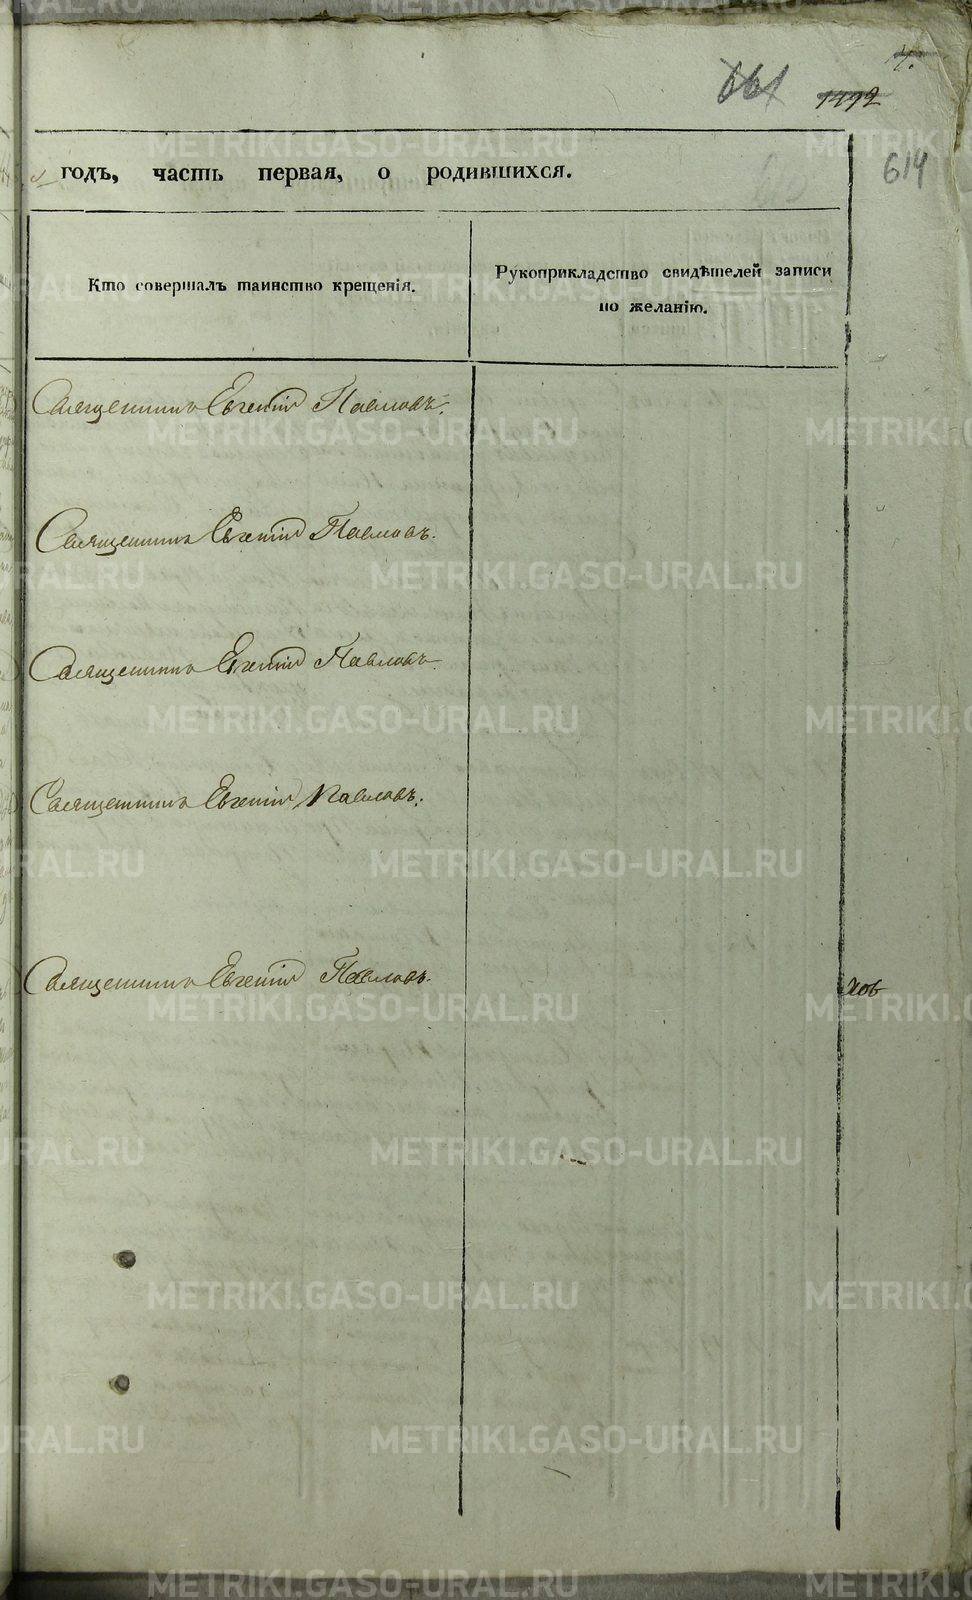 661
1492
614
годъ, часть первая, о родившихся.
Кто совершалъ таинство крещенія.
Рукоприкладство свидѣтелей записи
по желанію.
Священникъ Евгеній Павловъ.
Священникъ Евгеній Павловъ.
Священникъ Евгеній Павловъ
Священникъ Евгеній Павловъ.
Священникъ Евгеній Павловъ.
METRIKI.GASO-URAL.RU